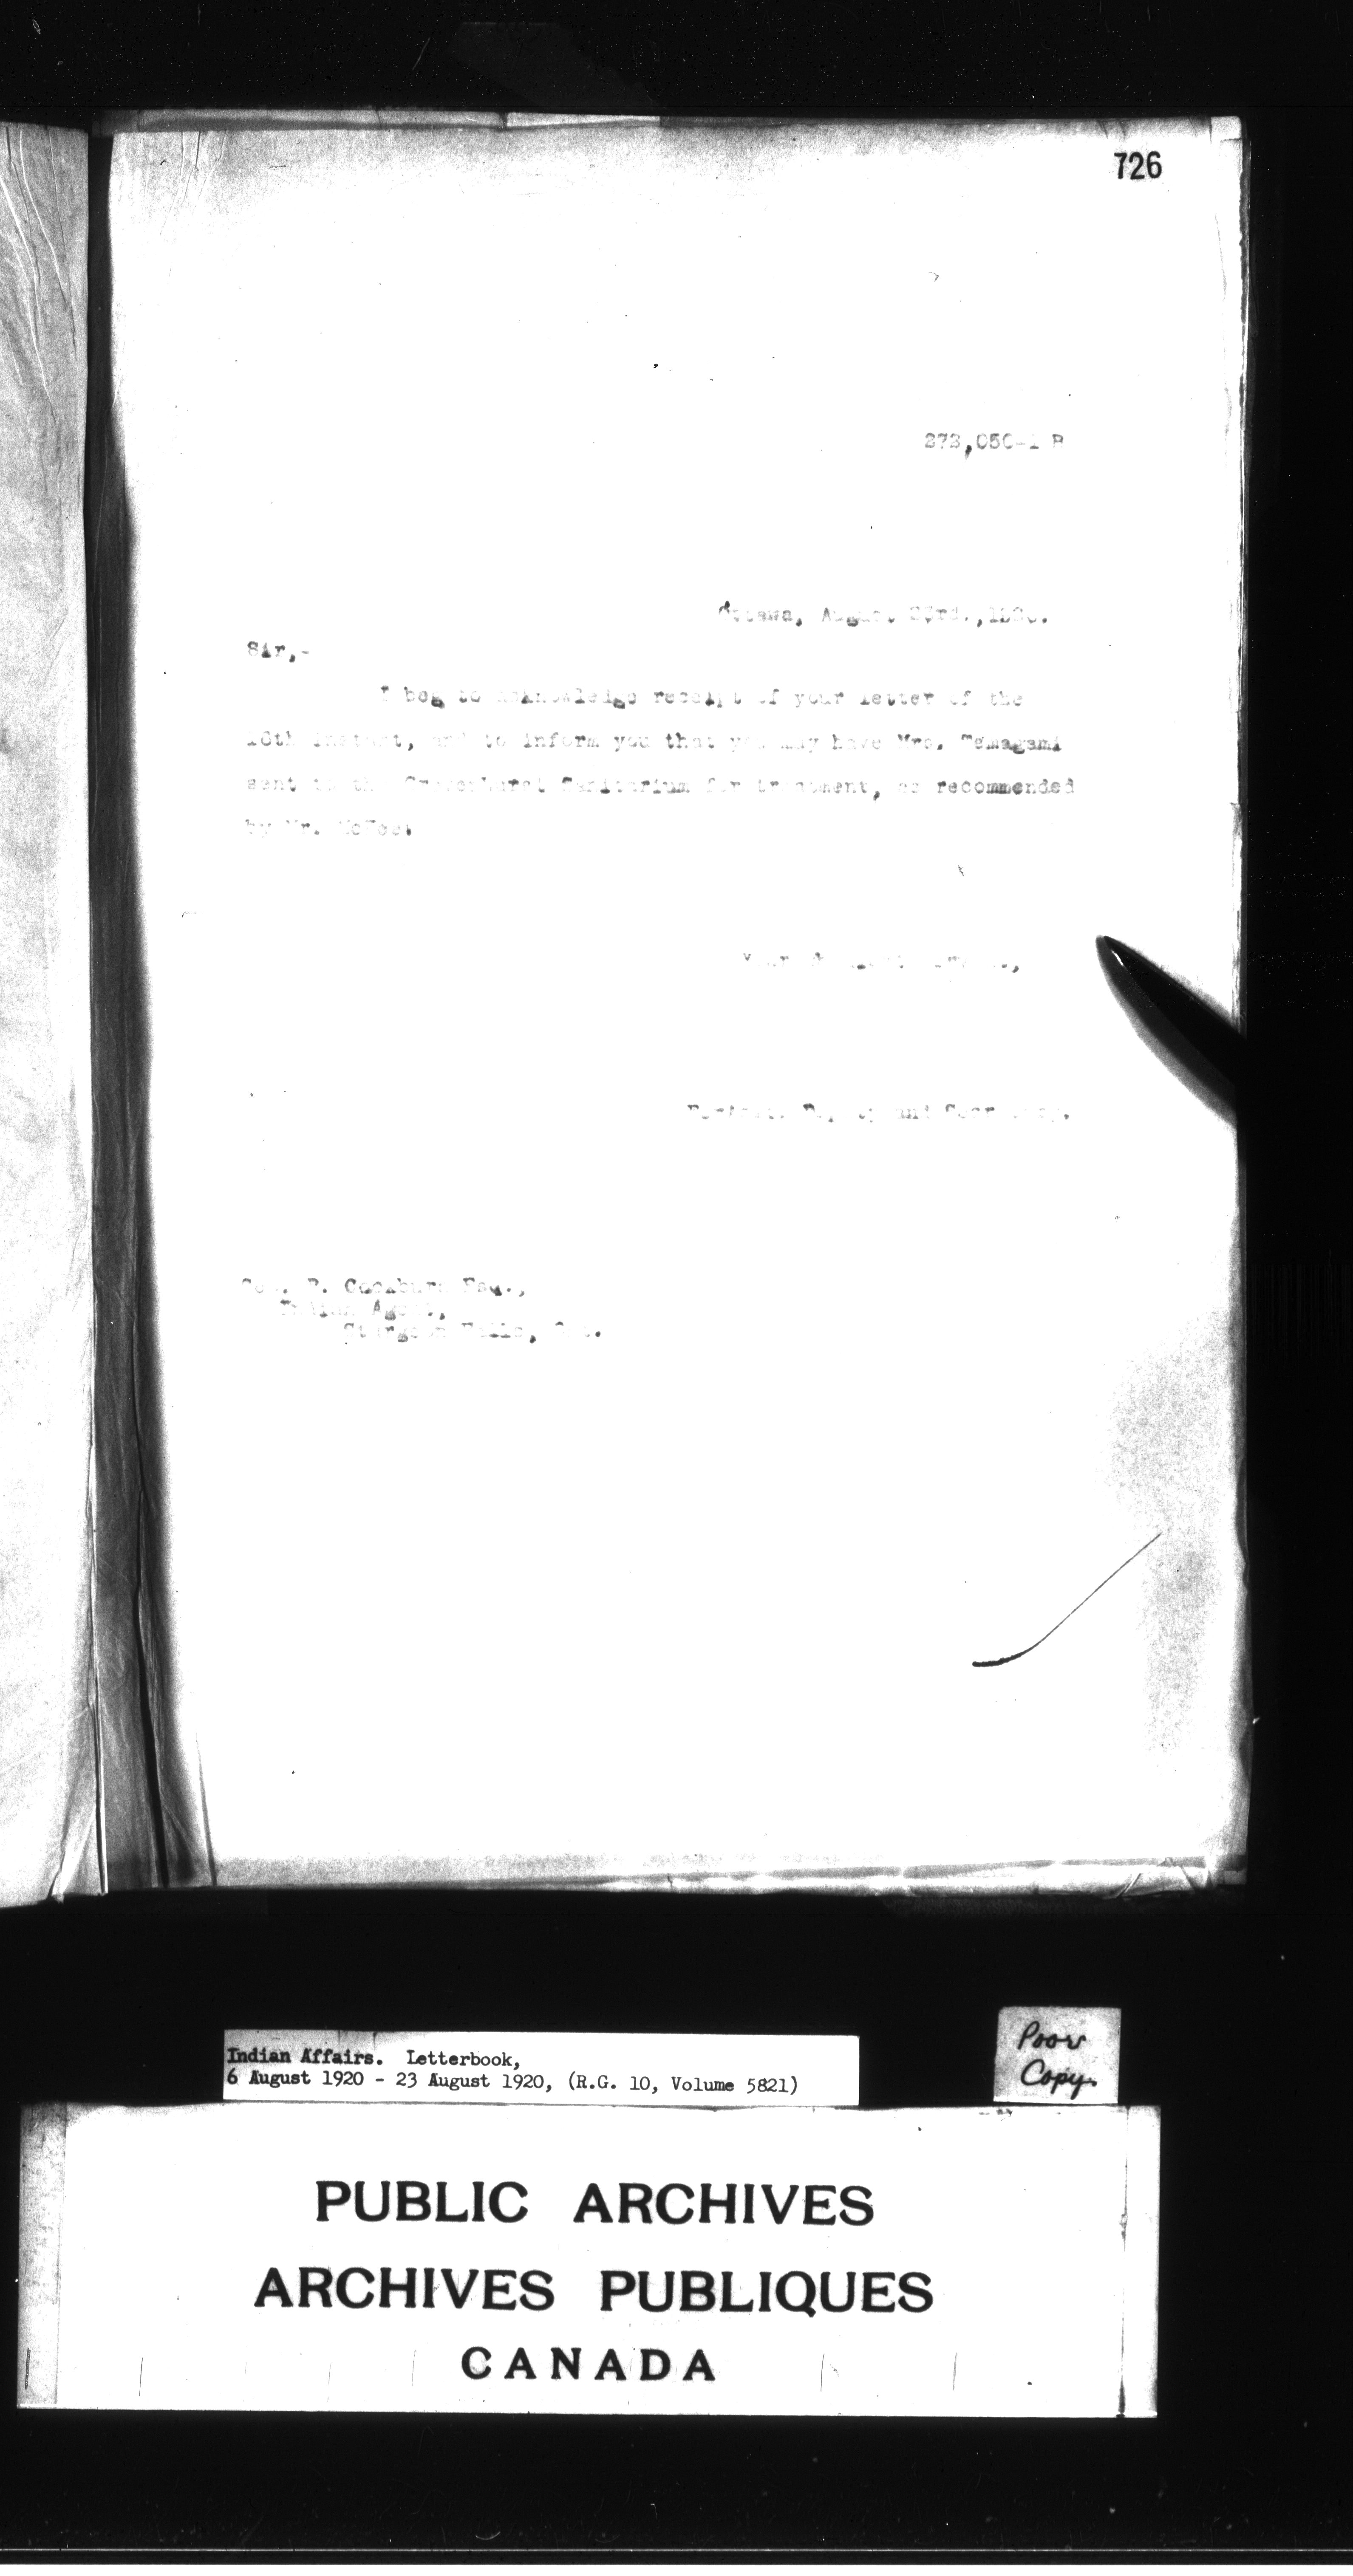 726
Ottawa, August 23rd., 1920.
Sir,-
I beg to acknowledge receipt of your letter of the
instant, and to inform you that you may have Mrs. Temagami
sent to the Gravenhurst Sanitarium for treatment, as recommended
by Mr.
Your obedient servant,
Deputy and Secretary.
Geo. P. Cockburn Esq.,
Indian Agent,
Sturgeon Falls, Ont.
Indian Affairs. Letterbook,
6 August 1920 - 23 August 1920, (R.G. 10, Volume 5821)
Poor
Copy
PUBLIC ARCHIVES
ARCHIVES PUBLIQUES
CANADA